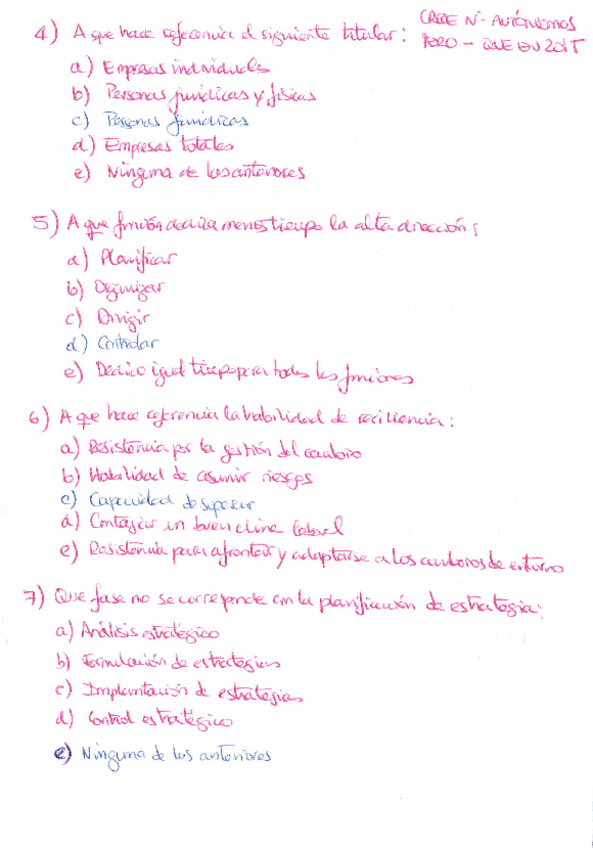 4) A que hace referencia el siguiente titular: CRECE Nº AUTÓNOMOS
PERO - QUE EN 2017
a) Empresas individuales
b) Personas jurídicas y físicas
c) Personas jurídicas
d) Empresas totales
e) Ninguna de las anteriores
5) A que función dedica menos tiempo la alta dirección:
a) Planificar
b) Organizar
c) Dirigir
d) Controlar
e) Dedica igual tiempo para todas las funciones
6) A que hace referencia la habilidad de resiliencia:
a) Resistencia por la gestión del cambio
b) Habilidad de asumir riesgos
c) Capacidad de superar
d) Contagiar un buen clima laboral
e) Resistencia para afrontar y adaptarse a los cambios de entorno
7) Que fase no se corresponde con la planificación de estrategia:
a) Análisis estratégico
b) Formulación de estrategias
c) Implantación de estrategias
d) Control estratégico
e) Ninguna de las anteriores